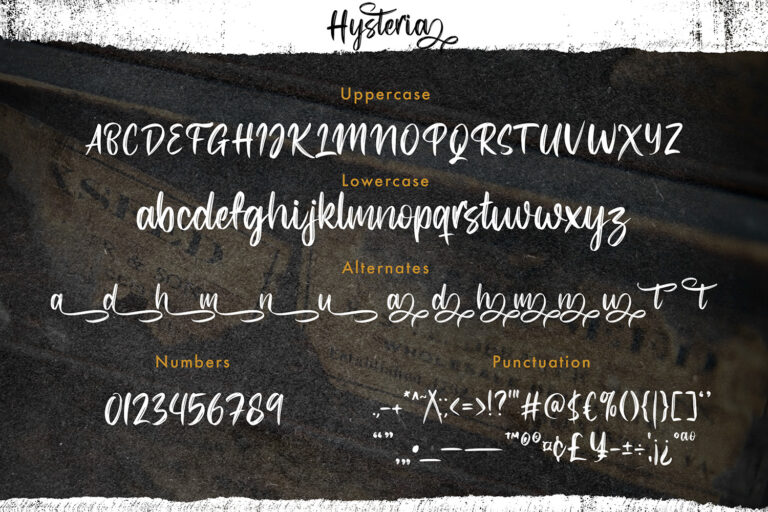 Hysteria
Uppercase
ABCDEFGHIJKLMNOPQRSTUVWXYZ
Lowercase
abcdefghijklmnopqrstuvwxyz
Alternates
a d h m n u a d h m n u T T
Numbers
Punctuation
0123456789
.,-+*^~/\:;<=>!?"'#@$€%(){|}[]‘’
“”‚„•_—–™©®¤¢£¥-±÷¦¡¿°ªº
Established